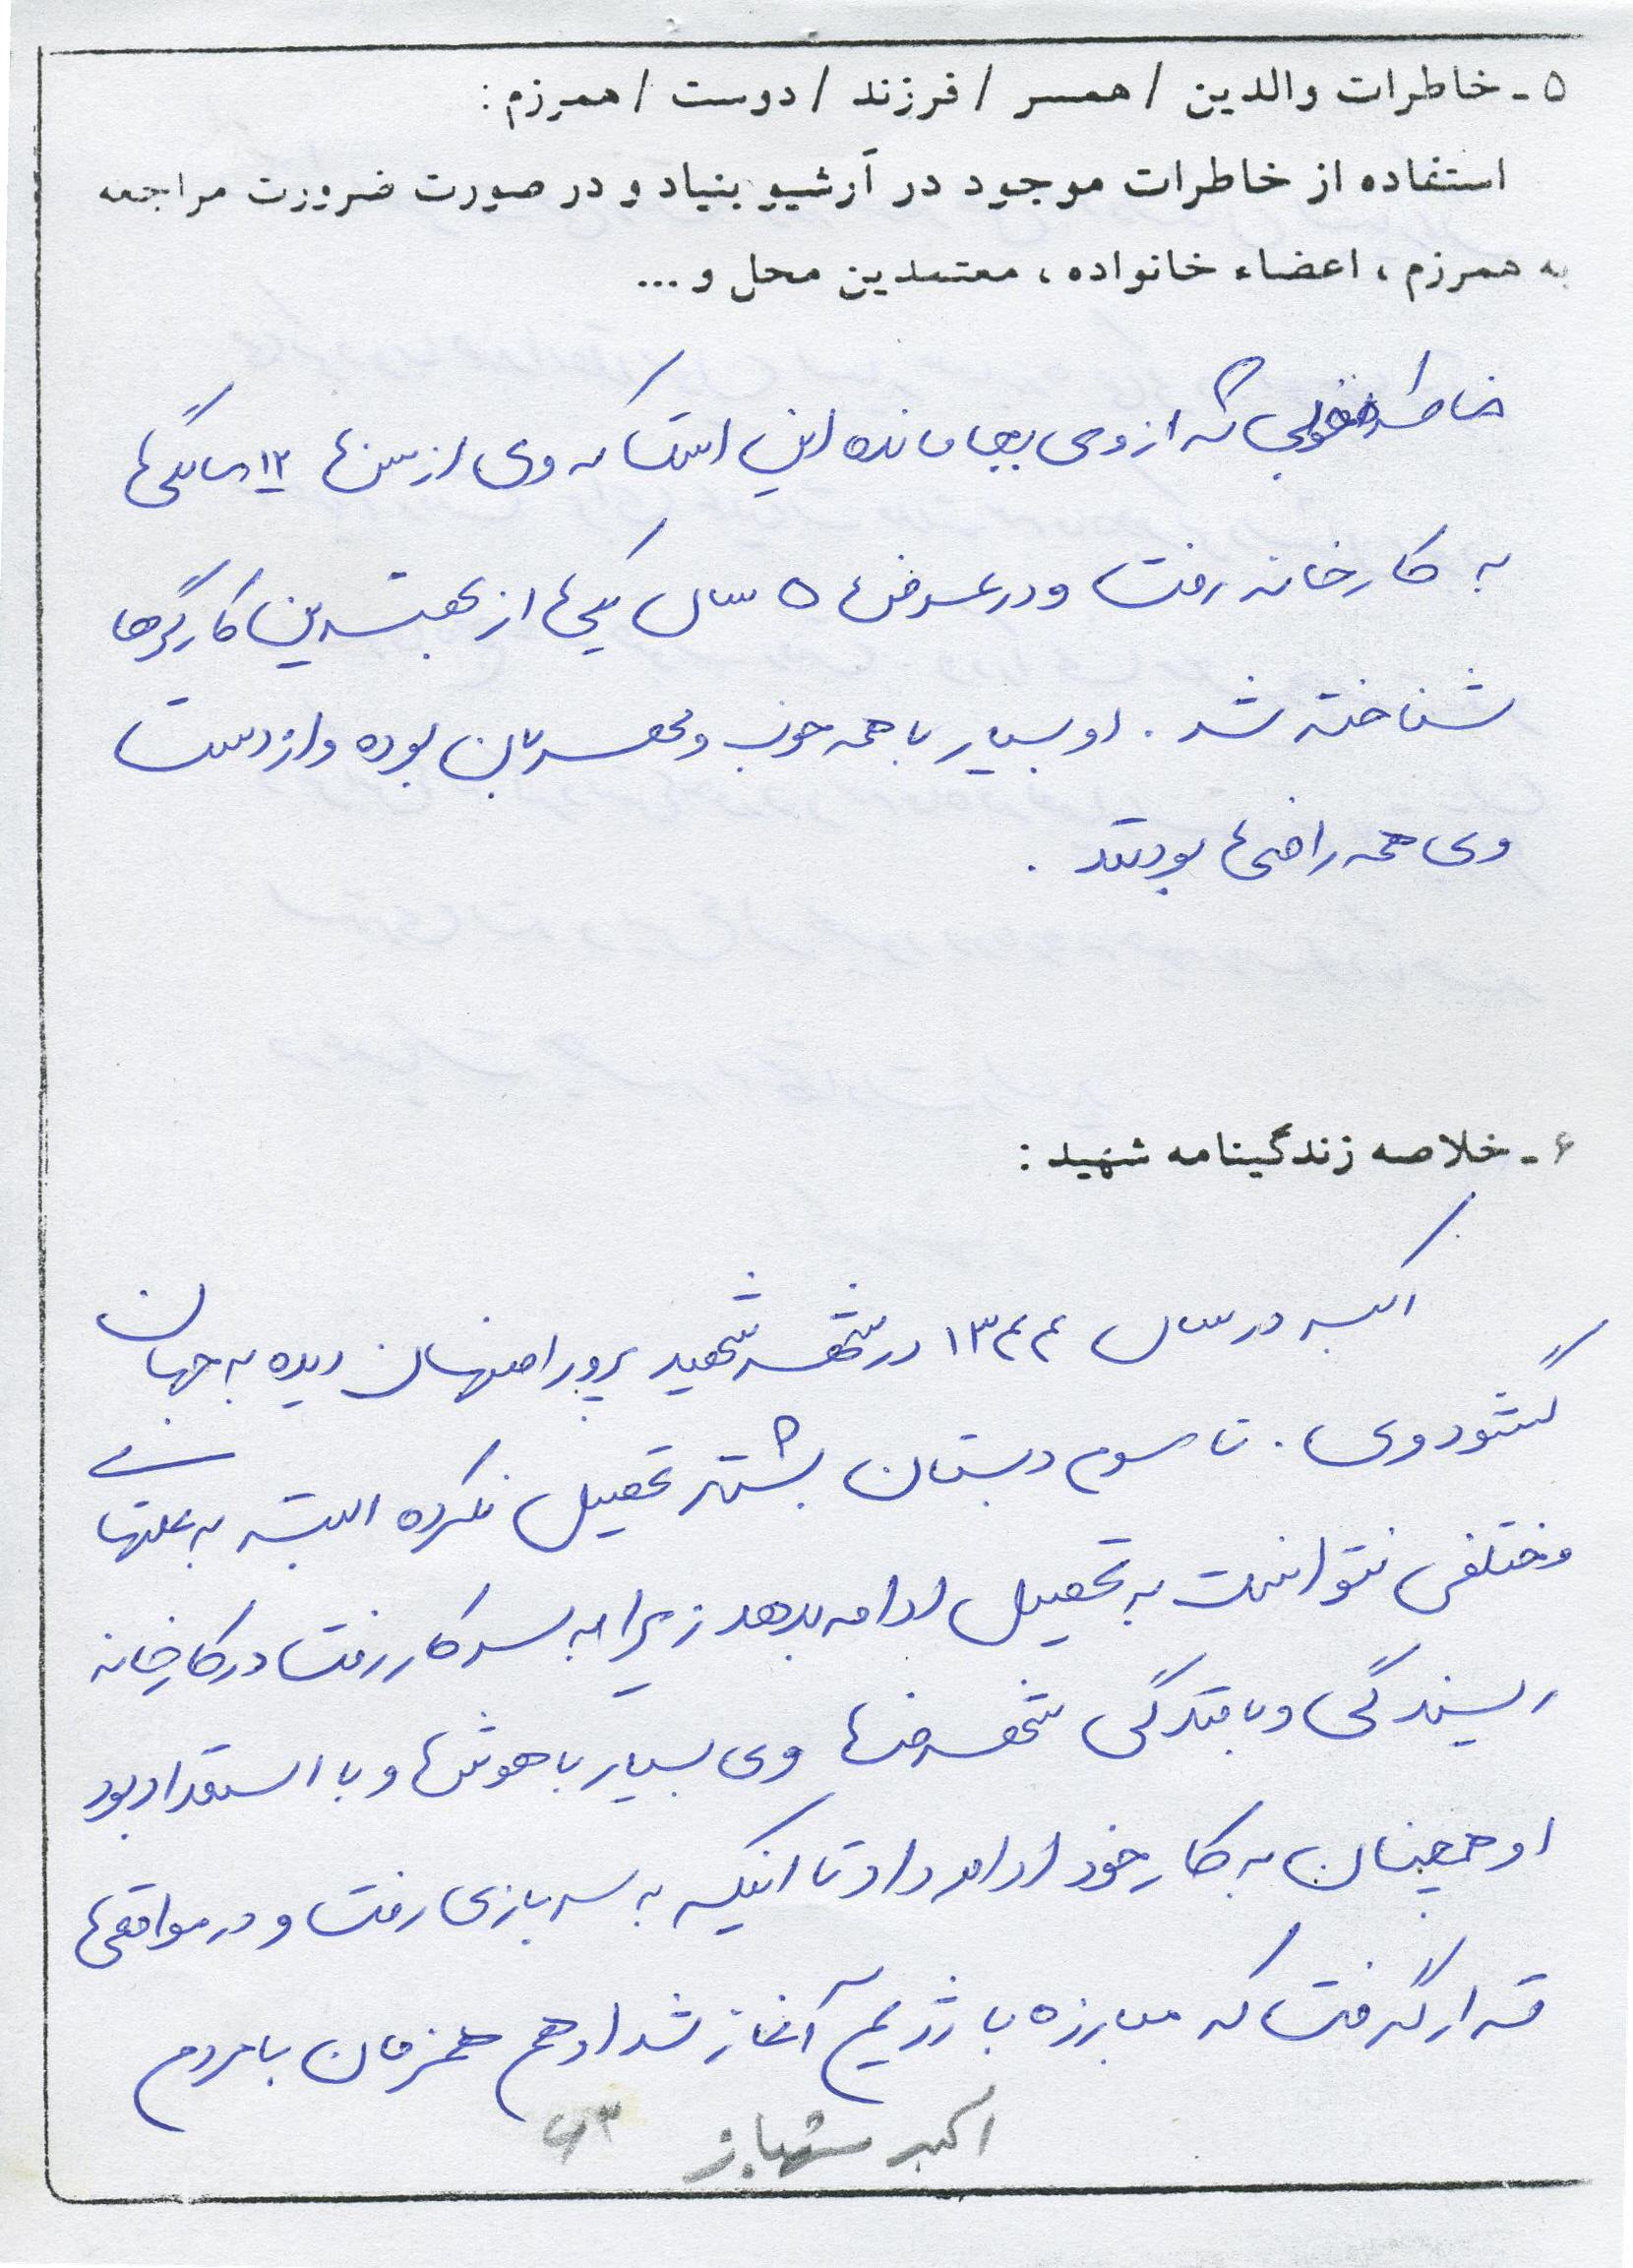 ۵ - خاطرات والدین / همسر / فرزند / دوست / همرزم :
استفاده از خاطرات موجود در آرشیو بنیاد و در صورت ضرورت مراجعه
به همرزم ، اعضاء خانواده ، معتمدین محل و ...
خاطره خوبی که از وی بجا مانده این است که وی از سن ۱۲ سالگی
به کارخانه رفت و در عرض ۵ سال یکی از بهترین کارگرها
شناخته شد . او بسیار با همه خوب و مهربان بوده و از دست
وی همه راضی بودند .
۶ - خلاصه زندگینامه شهید :
اکبر در سال ۱۳۴۴ در شهر شهید پرور اصفهان دیده به جهان
گشود وی . تا سوم دبستان بیشتر تحصیل نکرده البته به علتهای
مختلفی نتوانست به تحصیل ادامه بدهد زیرا به سر کار رفت در کارخانه
ریسندگی و بافندگی وی بسیار با هوش و با استعداد بود
او همچنان به کار خود ادامه داد تا اینکه به سربازی رفت و در مواقعی
قرار گرفت که مبارزه با رژیم آغاز شد او هم همزمان با مردم
اکبر شهباز ۶۳